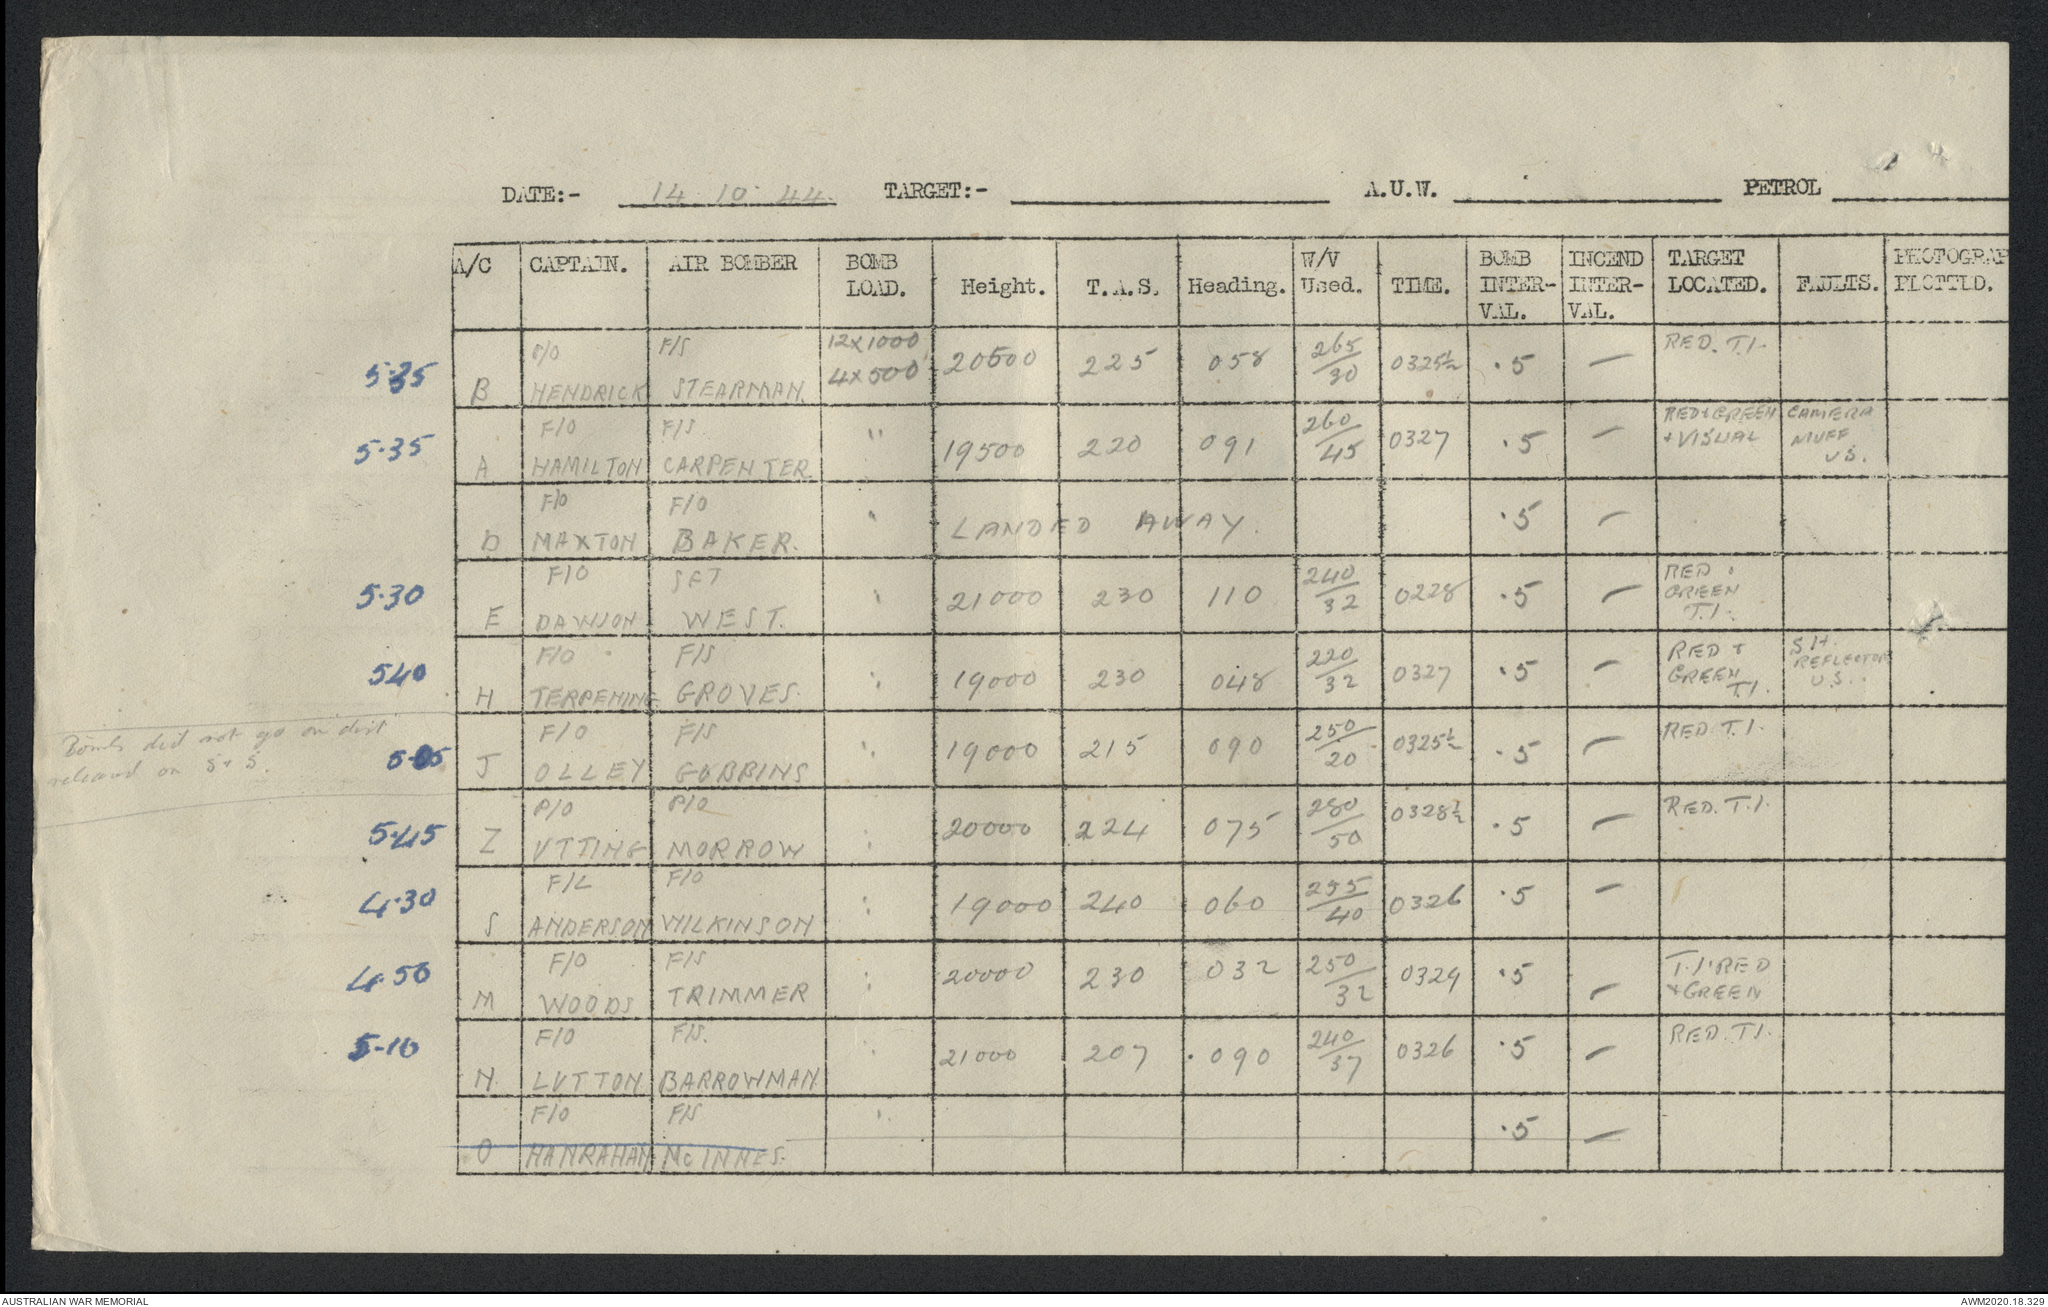 DATE:- 14 10 44. TARGET:- A.U.W. PETROL
A/C CAPTAIN. AIR BOMBER BOMB LOAD. Height. T.A.S. Heading. W/V Used. TIME. BOMB INTER-VAL. INCEND INTER-VAL. TARGET LOCATED. FAULTS. PHOTOGRAP PLOTTED.
5·35 B F/O HENDRICK F/S STEARMAN. 12x1000 4x500 20500 225 058 265/30 0325½ ·5 — RED. T.I.
5·35 A F/O HAMILTON F/S CARPENTER " 19500 220 091 260/45 0327 ·5 — RED+GREEN + VISUAL CAMERA MUFF US.
D F/O MAXTON F/O BAKER. " LANDED AWAY. ·5 —
5·30 E F/O DAWSON SGT WEST. " 21000 230 110 240/32 0228 ·5 — RED + GREEN T.I.
540 H F/O TERPENING F/S GROVES. " 19000 230 048 220/32 0327 ·5 — RED + GREEN T.I. REFLECTOR U.S.
Bombs did not go on dist
released on
J F/O OLLEY F/S GUBBINS " 19000 215 090 250/20 0325½ ·5 — RED T.I.
5·45 Z P/O UTTING P/O MORROW " 20000 224 075 280/50 0328½ ·5 — RED. T.I.
4·30 S F/L ANDERSON F/O WILKINSON " 19000 240 060 255/40 0326 ·5 —
4·50 M F/O WOODS F/S TRIMMER " 20000 230 032 250/32 0329 ·5 — T.I. RED + GREEN
5-10 N F/O LUTTON F/S. BARROWMAN " 21000 207 090 240/37 0326 ·5 — RED. T.I.
O F/O HANRAHAN F/S McINNES. " ·5 —
AUSTRALIAN WAR MEMORIAL AWM2020.18.329